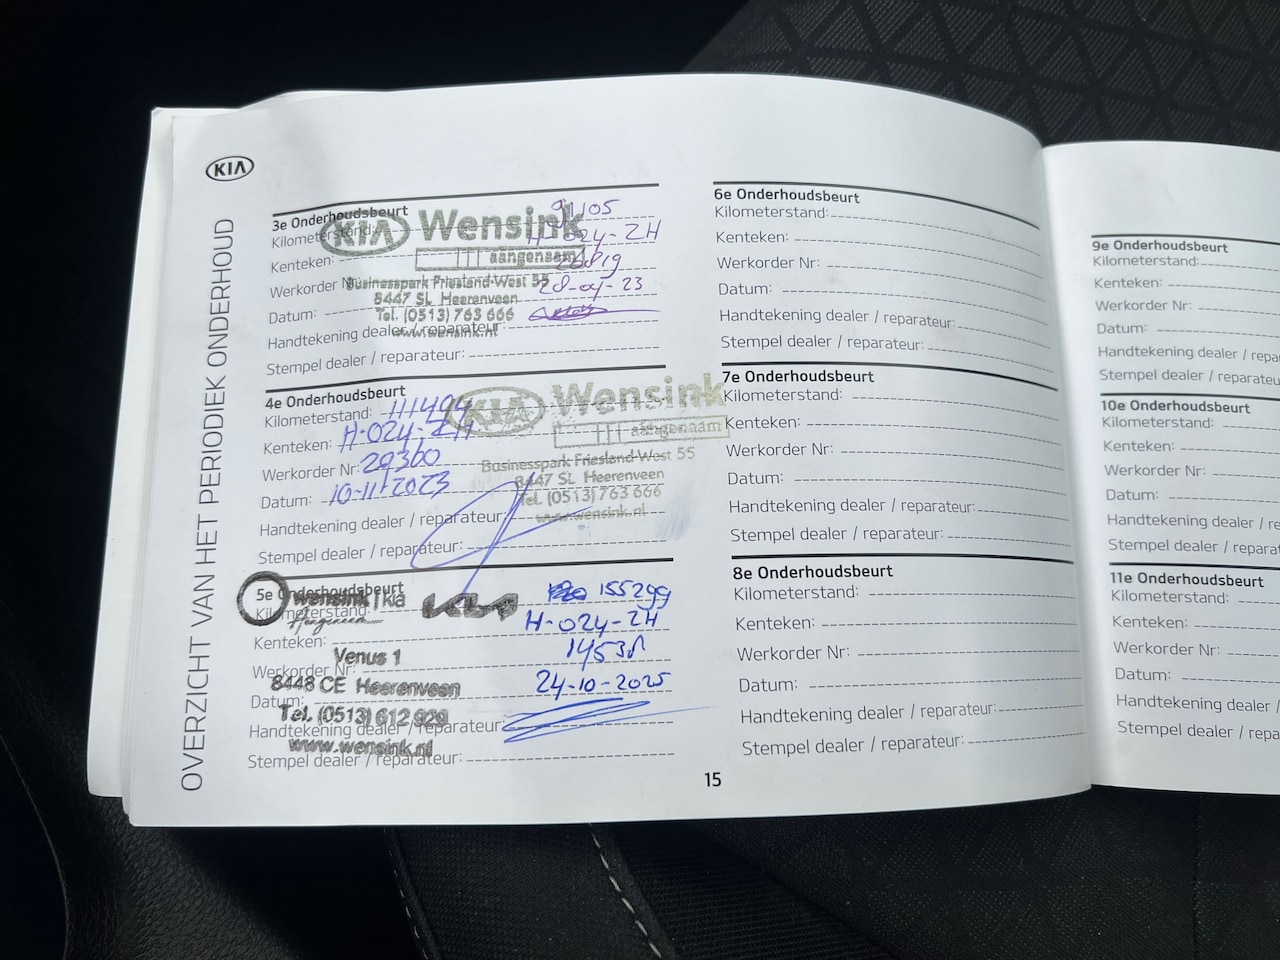 KIA
OVERZICHT VAN HET PERIODIEK ONDERHOUD
3e Onderhoudsbeurt
Kilometerstand: 91105
Kenteken: H-024-ZH
Werkorder Nr:
Datum: 28-04-23
Handtekening dealer / reparateur:
Stempel dealer / reparateur:
KIA Wensink
aangenaam
Businesspark Friesland-West 55
8447 SL Heerenveen
Tel. (0513) 763 666
www.wensink.nl
4e Onderhoudsbeurt
Kilometerstand: 111494
Kenteken: H-024-ZH
Werkorder Nr: 29360
Datum: 10-11-2023
Handtekening dealer / reparateur:
Stempel dealer / reparateur:
KIA Wensink
aangenaam
Businesspark Friesland-West 55
8447 SL Heerenveen
Tel. (0513) 763 666
www.wensink.nl
5e Onderhoudsbeurt
Kilometerstand: 155299
Kenteken: H-024-ZH
Werkorder Nr:
Datum: 24-10-2025
Handtekening dealer / reparateur:
Stempel dealer / reparateur:
wensink | kia
Venus 1
8448 CE Heerenveen
Tel. (0513) 612 929
www.wensink.nl
6e Onderhoudsbeurt
Kilometerstand:
Kenteken:
Werkorder Nr:
Datum:
Handtekening dealer / reparateur:
Stempel dealer / reparateur:
7e Onderhoudsbeurt
Kilometerstand:
Kenteken:
Werkorder Nr:
Datum:
Handtekening dealer / reparateur:
Stempel dealer / reparateur:
8e Onderhoudsbeurt
Kilometerstand:
Kenteken:
Werkorder Nr:
Datum:
Handtekening dealer / reparateur:
Stempel dealer / reparateur:
15
9e Onderhoudsbeurt
Kilometerstand:
Kenteken:
Werkorder Nr:
Datum:
Handtekening dealer / repa
Stempel dealer / reparateu
10e Onderhoudsbeurt
Kilometerstand:
Kenteken:
Werkorder Nr:
Datum:
Handtekening dealer / re
Stempel dealer / reparat
11e Onderhoudsbeurt
Kilometerstand:
Kenteken:
Werkorder Nr:
Datum:
Handtekening dealer /
Stempel dealer / repa